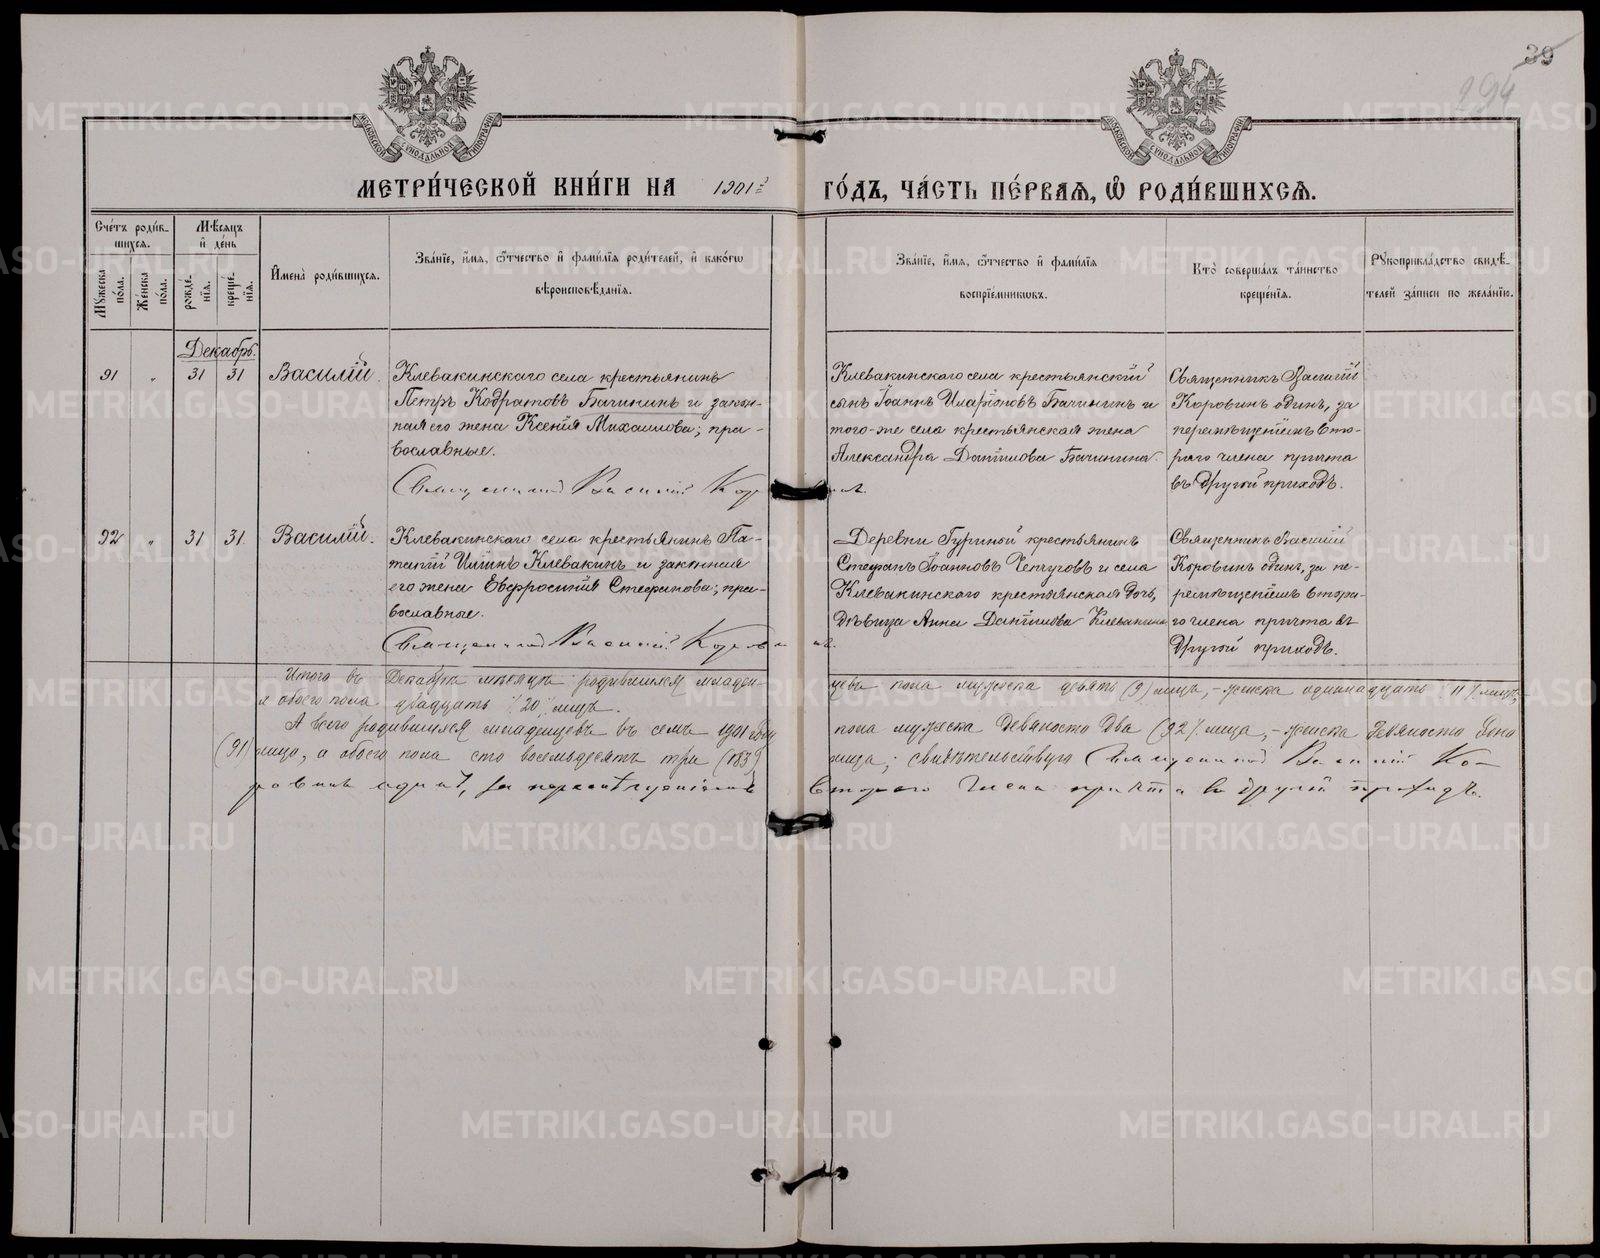 39
294
МОСКОВСКОЙ СѴНОДАЛЬНОЙ ТИПОГРАФІИ
МОСКОВСКОЙ СѴНОДАЛЬНОЙ ТИПОГРАФІИ
МЕТРИ́ЧЕСКОЙ КНИ́ГИ НА 1901 г ГО́ДЪ, ЧА́СТЬ ПЕ́РВАЯ, Ѡ РОДИ́ВШИХСЯ.
Сче́тъ роди́в-
шихся.
Мѣ́сяцъ
и де́нь
Му́жеска по́ла.
Же́нска по́ла.
рожде́-нія.
креще́-нія.
И́мена роди́вшихся.
Зва́ніе, и́мя, о́тчество и фами́лія роди́телей, и како́гѡ
вѣроисповѣ́данія.
Зва́ніе, и́мя, о́тчество и фами́лія
воспріе́мниковъ.
Кто̀ соверша́лъ та́инство
креще́нія.
Рꙋкоприкла́дство свидѣ́-
телей за́писи по жела́нію.
Декабрь.
91 " 31 31 Василій.
Клевакинскаго села крестьянинъ
Петръ Кодратовъ Бачининъ и закон-
ная его жена Ксенія Михаилова; пра-
вославные.
Священникъ Василій Коровинъ.
Клевакинскаго села крестьянскій
сынъ Іоаннъ Иларіоновъ Бачининъ и
того-же села крестьянская жена
Александра Даніилова Бачинина.
Священникъ Василій
Коровинъ одинъ, за
перемѣщеніемъ вто-
раго члена причта
въ другой приходъ.
92 " 31 31. Василій.
Клевакинскаго села крестьянинъ Па-
тапій Илiинъ Клевакинъ и законная
его жена Евфросинія Стефанова; пра-
вославные.
Священникъ Василій Коровинъ.
Деревни Гуриной крестьянинъ
Стефанъ Іоанновъ Чепчуговъ и села
Клевакинскаго крестьянская дочь,
дѣвица Анна Даніилова Клевакина
Священникъ Василій
Коровинъ одинъ, за пе-
ремѣщеніемъ втора-
го члена причта въ
другой приходъ.
Итого въ Декабрѣ мѣсяцѣ родившихся младен-цевъ пола мужеска девять (9) лицъ, - женска одиннадцать (11) лицъ,
а обоего пола двадцать (20) лицъ.
А всего родившихся младенцевъ въ семъ 1901 году пола мужеска девяносто два (92) лица, - женска девяносто одно
(91) лицо, а обоего пола сто восемьдесятъ три (183) лица; свидѣтельствую Священникъ Василій Ко-
ровинъ одинъ, за перемѣщеніемъ втораго члена причта въ другой приходъ.
METRIKI.GASO-URAL.RU